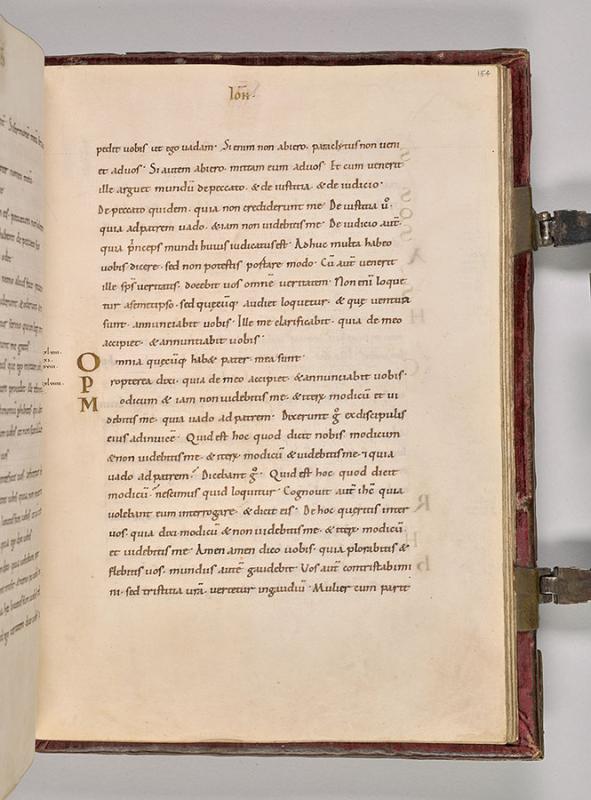 154
Ioh̄.
pedit uobis ut ego uadam. Si enim non abiero. paraclytus non veni
et aduos. Si autem abiero. mittam eum aduos. Et cum venerit
ille arguet mundū depeccato. & de iustitia. & de iudicio.
De peccato quidem. quia non crediderunt me. De iustitia ū.
quia adpatrem uado. & iam non uidebitis me. De iudicio aut̄.
quia p̄nceps mundi huius iudicatus est. Adhuc multa habeo
uobis dicere. sed non potestis portare modo. Cū aut̄ venerit
ille sp̄s veritatis. docebit vos omnē veritatem. Non enī loque
tur asemetipso. sed quęcūq; audiet loquetur. & quę ventura
sunt. annunciabit uobis. Ille me clarificabit. quia de meo
accipiet. & annunciabit uobis.
Omnia quęcūq; hab& pater. mea sunt.
Propterea dixi. quia de meo accipiet. & annunciabit uobis.
Modicum & iam non uidebitis me. & iterū modicū et vi
debitis me. quia uado ad patrem. Dixerunt g̊ ex discipulis
eius adinuicē. Quid est hoc quod dicit nobis modicum
& non uidebitis me. & iterū modicū & uidebitis me. & quia
uado ad patrem. Dicebant g̊. Quid est hoc quod dicit
modicū. nescimus quid loquitur. Cognouit aut̄ ihc̄ quia
volebant eum interrogare. & dicit eis. De hoc quęritis inter
vos. quia dixi modicū & non uidebitis me. & iterū modicū
et uidebitis me. Amen amen dico uobis. quia plorabitis &
flebitis vos. mundus autē gaudebit. Vos aut̄ contristabimi
ni. sed tristitia ur̄a. vertetur ingaudiū. Mulier cum parit